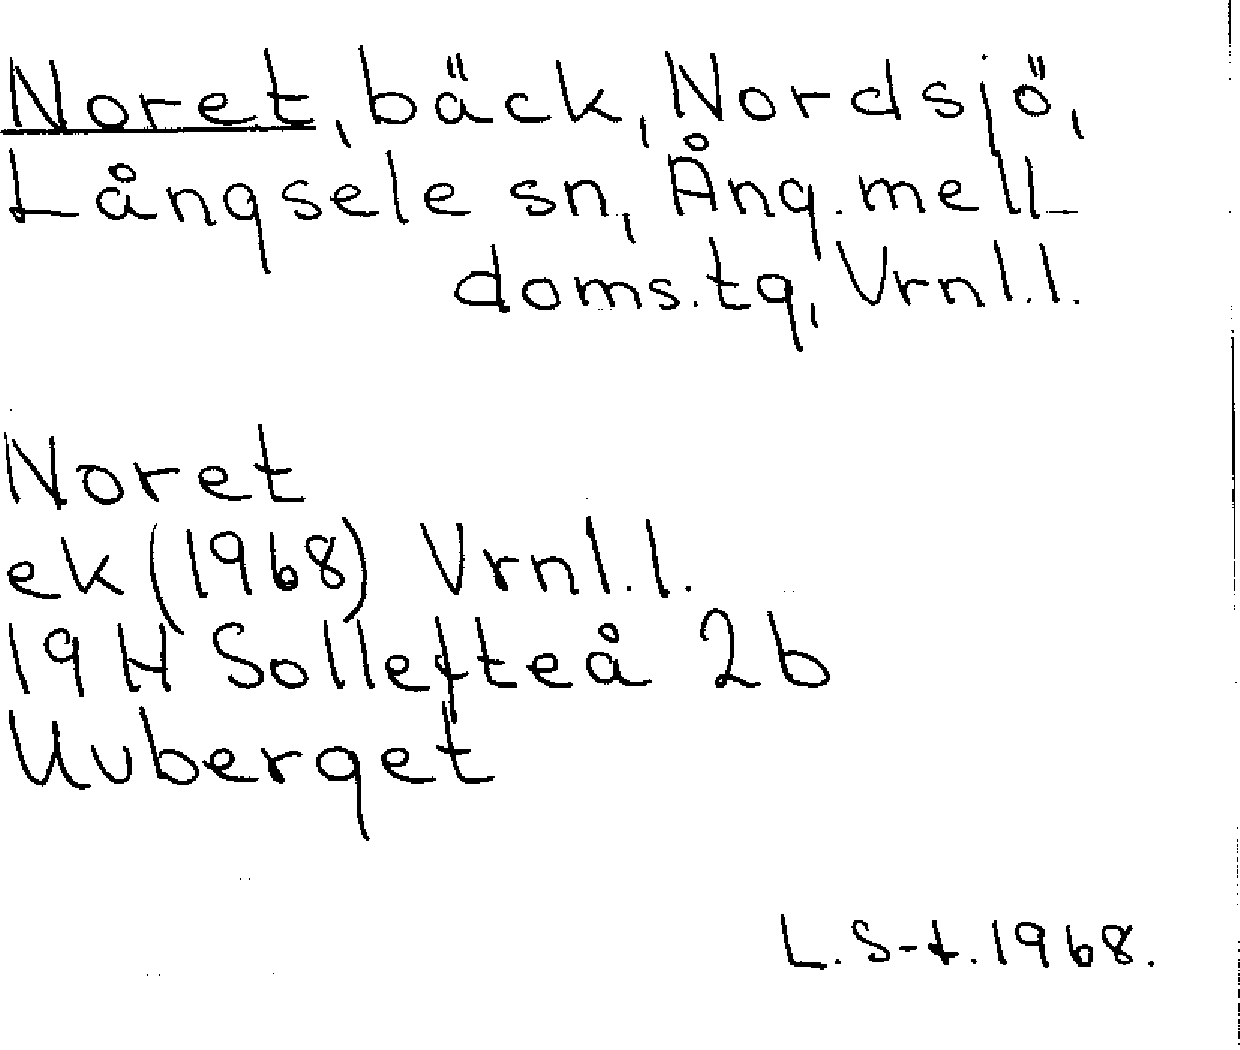 Noret, bäck, Nordsjö,
Långsele sn, Ång. mell-
doms.tg, Vrnl.l.
Noret
ek (1968) Vrnl.l.
19H Sollefteå 2b
Uvberget
L. S-t. 1968.